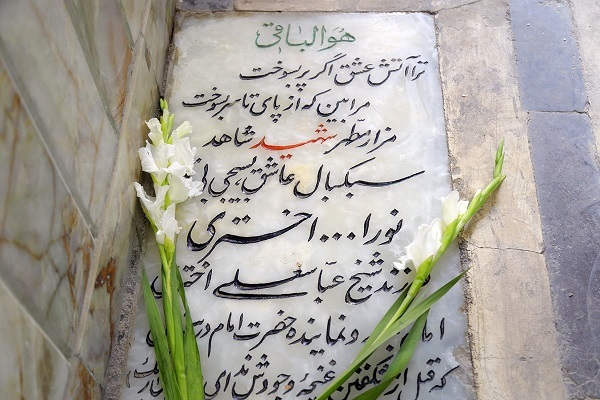 هو الباقی
ترا آتش عشق اگر پر بسوخت
مرا بین که از پای تا سر بسوخت
مزار مطهر شهید شاهد
سبکبال عاشق بسیجی
نورا... اختری
فرزند شیخ عباسعلی اختری
امام و نماینده حضرت امام در
که قبل از شکفتن غنچه وجودش ندای